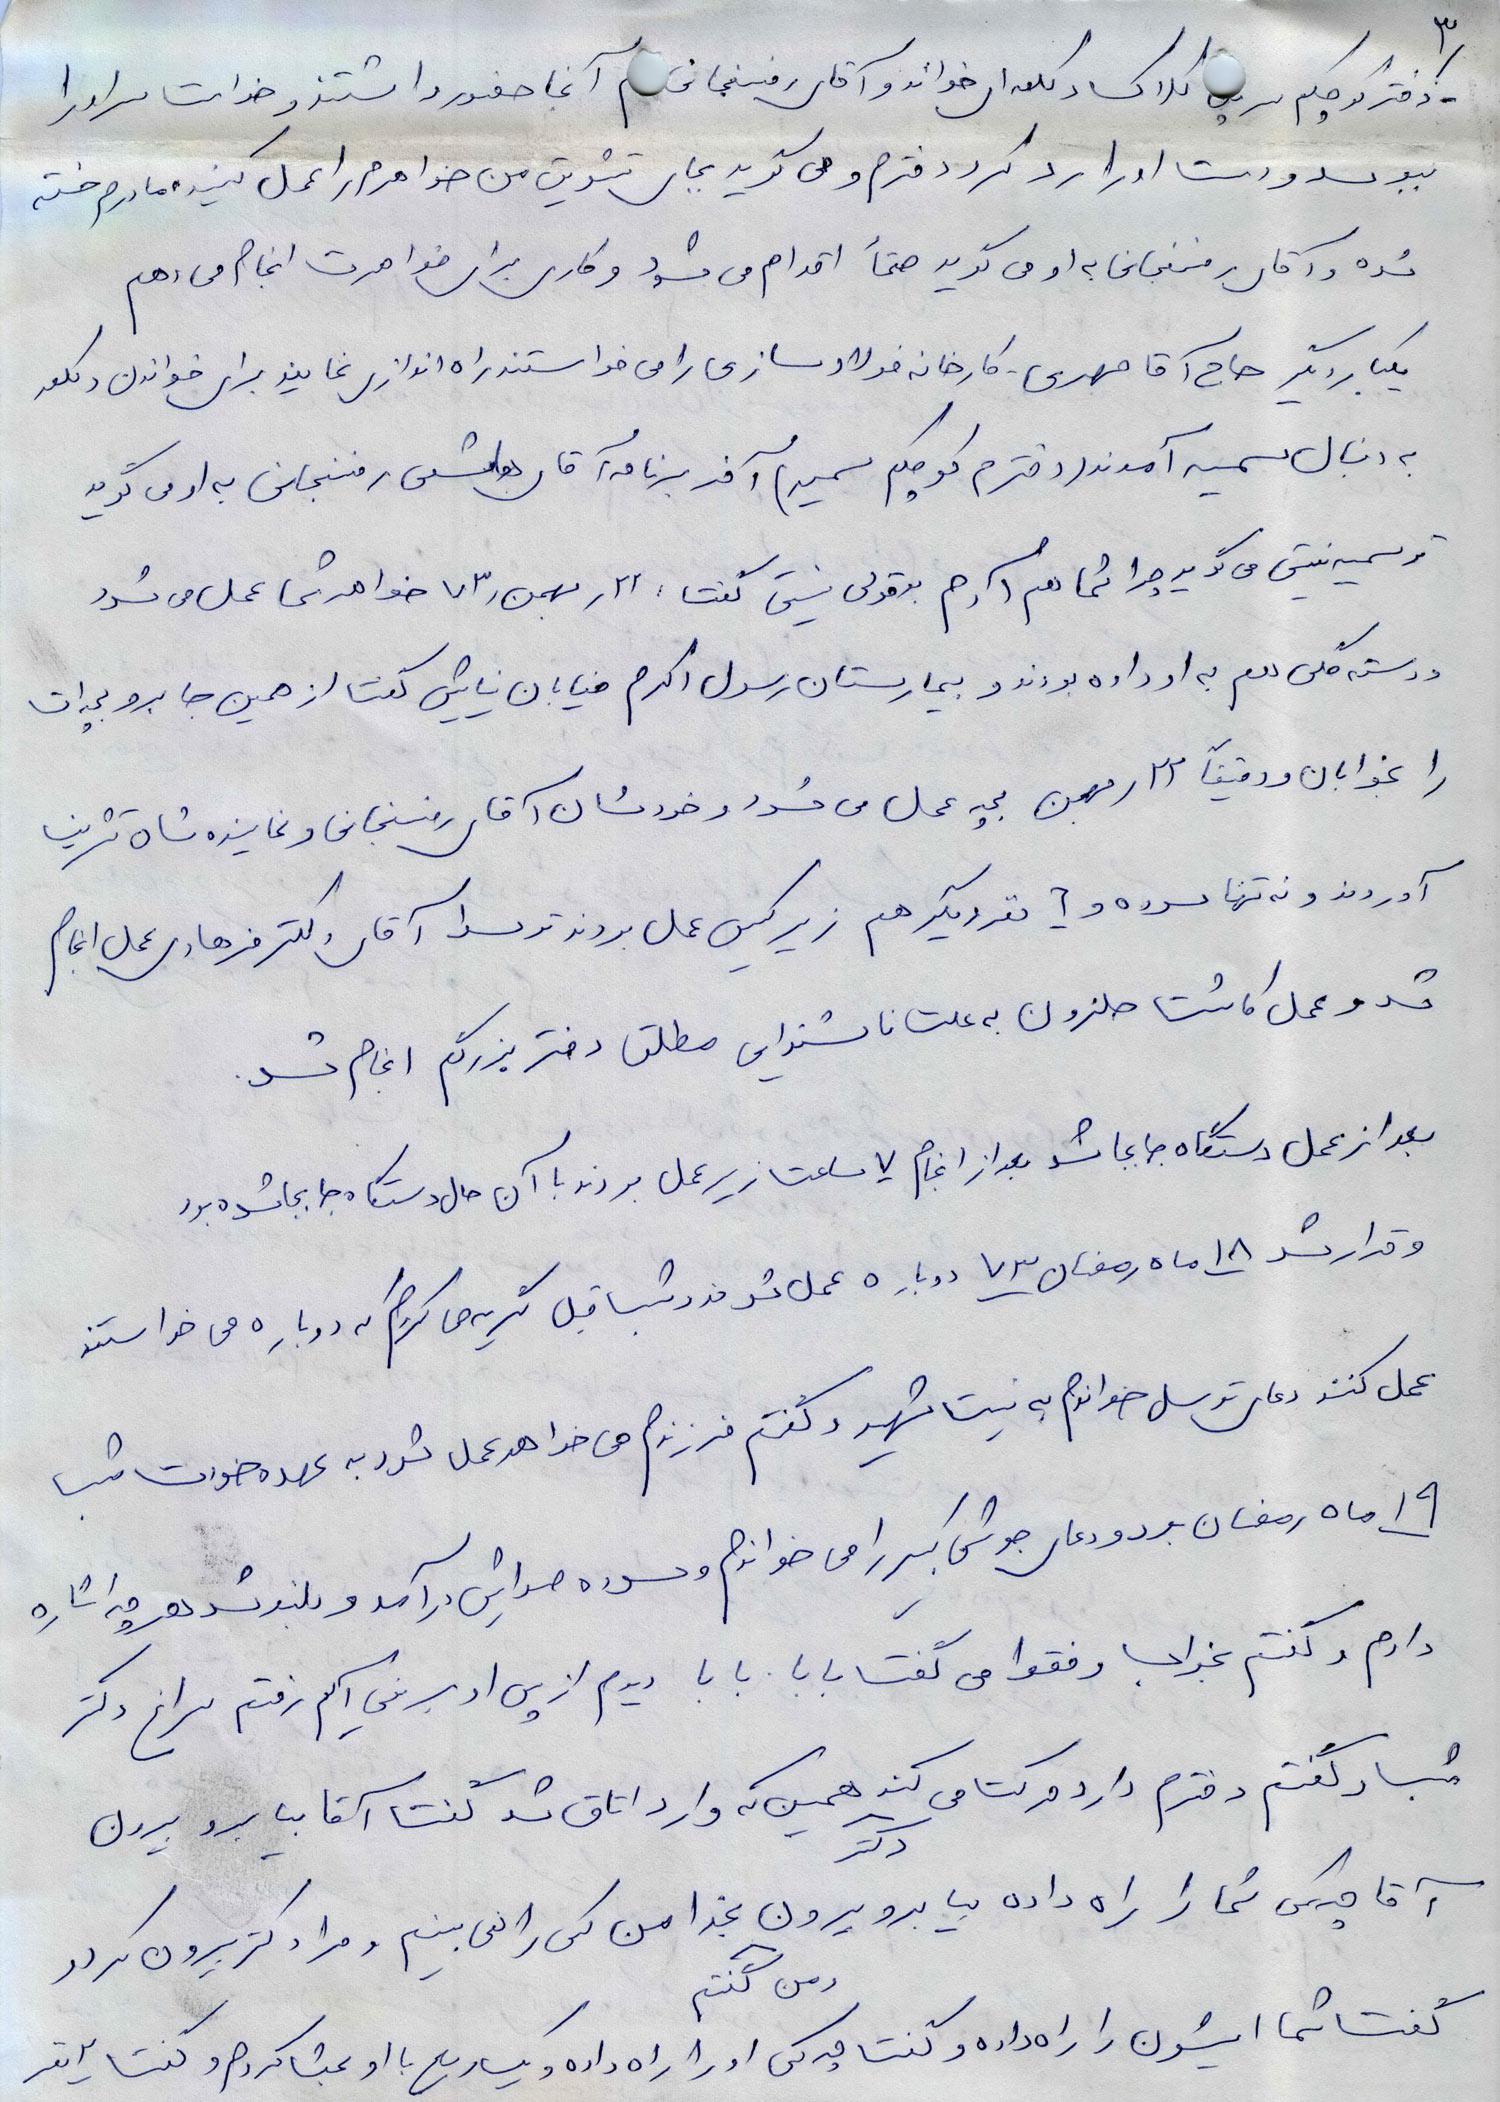 ۳
دختر کوچکم سر پل کلاک دکلمه‌ای خواند و آقای رفسنجانی هم آنجا حضور داشتند و خواست سر او را
ببوسد و دست او را رد کرد دخترم و می گوید بجای تشویق من خواهرم را عمل کنید مادرم خسته
شده و آقای رفسنجانی به او می گوید حتماً اقدام می شود و کاری برای خواهرت انجام می دهم
یکبار دیگر حاج آقا مهدی - کارخانه فولاد سازی را می خواستند راه اندازی نمایند برای خواندن دکلمه
به دنبال سمیه آمدند (دخترم کوچکم سمیه) آخر برنامه آقای هاشمی رفسنجانی به او می گوید
تو سمیه نیستی می گوید چرا شما هم آدم بقولی نیستی گفت ۲۲ بهمن ۷۳ خواهر شما عمل می شود
و دسته گلی هم به او داده بودند و بیمارستان رسول اکرم خیابان نیایش گفت از همین جا برو بچه ات
را بخوابان و دقیقاً ۲۲ بهمن بچه عمل می شود و خودشان آقای رفسنجانی و نماینده شان تشریف
آوردند و نه تنها سوده و ۶ نفر دیگر هم زیر کمیسیون عمل بودند توسط آقای دکتر فرهادی عمل انجام
شد و عمل کاشت حلزون به علت ناشنوایی مطلق دختر بزرگم انجام شد.
بعد از عمل دستگاه جابجا شد بعد از انجام ۷ ساعت زیر عمل بودند با آن حال دستگاه جابجا شده بود
و قرار شد ۱۸ ماه رمضان ۷۳ دوباره عمل شود شب قبل گریه می کردم که دوباره می خواستند
عمل کنند دعای توسل خواندم به نیت شهید و گفتم فرزندم می خواهد عمل شود به عهده خودت شب
۱۹ ماه رمضان بود و دعای جوشن کبیر را می خواندم و سوده صدایش درآمد و بلند شد هر چه اشاره
دارم و گفتم بخواب و فقط می گفت بابا. بابا دیدم از پس او بر نمی آیم رفتم سراغ دکتر
شب و گفتم دخترم دارد حرکت می کند همین که دکتر وارد اتاق شد گفت آقا بیا برو بیرون
آقا چه کسی شما را راه داده بیا برو بیرون بخدا من کسی را نمی بینم و مرا دکتر بیرون کرد و
گفت شما ایشون را راه داده و گفت چه کسی او را راه داده و من گفتم و یک ربع با او بحث کردم و گفت ۲ نفر